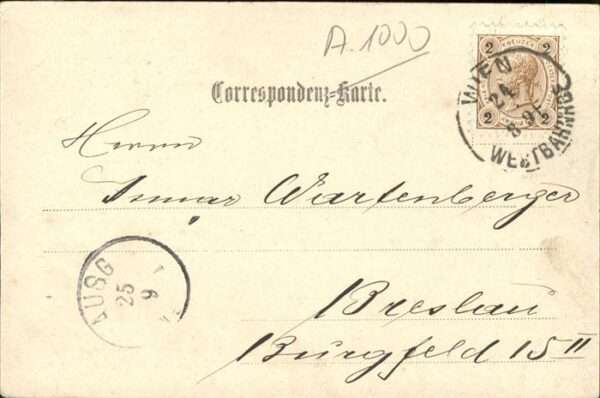 A.1000
2 KREUZER 2
2 2
WIEN
24
8 9
WESTBAHNHOF
Correspondenz-Karte.
Herrn
Ismar Wartenberger
AUSG
25
9
Breslau
Burgfeld 15 II